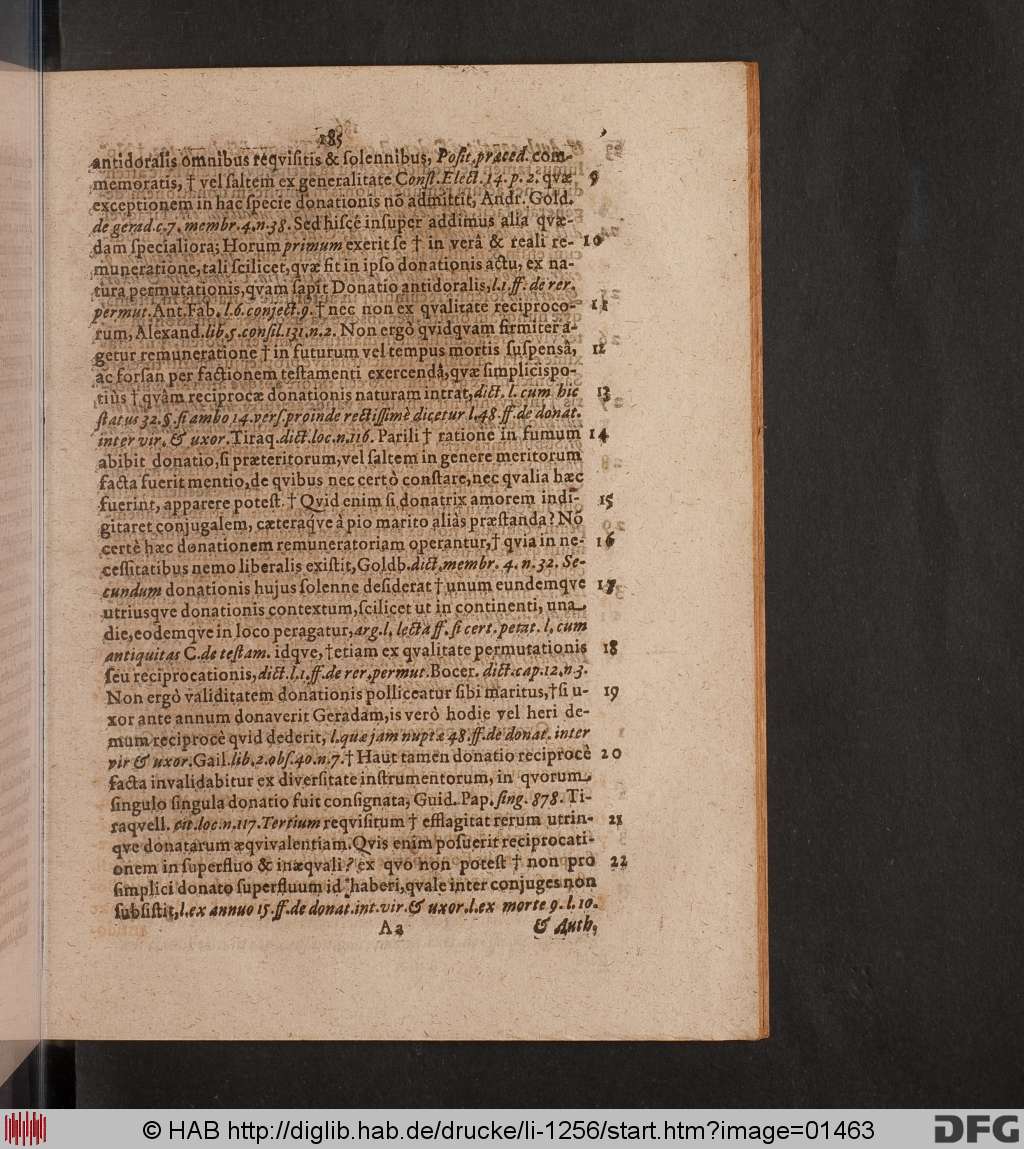 185
antidoralis omnibus reqvisitis & ſolennibus, Poſit. præced. com-
memoratis, † vel ſaltem ex generalitate Conſt. Elect. 14. p. 2. qvæ 9
exceptionem in hac ſpecie donationis nõ admittit, Andr. Gold.
de gerad. c. 7. membr. 4. n. 38. Sed hiſcè inſuper addimus alia qvæ-
dam ſpecialiora; Horum primum exerit ſe † in verâ & reali re- 10
muneratione, tali ſcilicet, qvæ fit in ipſo donationis actu, ex na-
tura permutationis, qvam ſapit Donatio antidoralis, l. 1. ff. de rer.
permut. Ant. Fab. l. 6. conject. 9. † nec non ex qvalitate reciproco- 11
rum, Alexand. lib. 5. conſil. 131. n. 2. Non ergò qvidqvam firmiter a-
getur remuneratione † in futurum vel tempus mortis ſuſpensâ, 12
ac forſan per factionem teſtamenti exercendâ, qvæ ſimplicis po-
tiùs † qvàm reciprocæ donationis naturam intrat, dict. l. cum hic 13
ſtatus 32. §. ſi ambo 14. verſ. proinde rectiſſimè dicetur l. 48. ff. de donat.
inter vir. & uxor. Tiraq. dict. loc. n. 116. Parili † ratione in fumum 14
abibit donatio, ſi præteritorum, vel ſaltem in genere meritorum
facta fuerit mentio, de qvibus nec certò conſtare, nec qvalia hæc
fuerint, apparere poteſt. † Qvid enim ſi donatrix amorem indi- 15
gitaret conjugalem, cæteraqve à pio marito aliàs præſtanda? Nõ
certè hæc donationem remuneratoriam operantur, † qvia in ne- 16
ceſſitatibus nemo liberalis exiſtit, Goldb. dict. membr. 4. n. 32. Se-
cundum donationis hujus ſolenne deſiderat † unum eundemqve 17
utriusqve donationis contextum, ſcilicet ut in continenti, una
die, eodemqve in loco peragatur, arg. l. lecta ff. ſi cert. petat. l. cum
antiquitas C. de teſtam. idqve, † etiam ex qvalitate permutationis 18
ſeu reciprocationis, dict. l. 1. ff. de rer. permut. Bocer. dict. cap. 12. n 3.
Non ergò validitatem donationis polliceatur ſibi maritus, † ſi u- 19
xor ante annum donaverit Geradam, is verò hodie vel heri de-
mum reciprocè qvid dederit, l. quæ jam nuptæ 48. ff. de donat. inter
vir & uxor. Gail. lib. 2. obſ. 40. n. 7. † Haut tamen donatio reciprocè 20
facta invalidabitur ex diverſitate inſtrumentorum, in qvorum
ſingulo ſingula donatio fuit conſignata, Guid. Pap. ſing. 878. Ti-
raqvell. cit. loc. n. 117. Tertium reqviſitum † efflagitat rerum utrin- 21
qve donatarum æqvivalentiam. Qvis enim poſuerit reciprocati-
onem in ſuperfluo & inæqvali? ex qvo non poteſt † non pro 22
ſimplici donato ſuperfluum id haberi, qvale inter conjuges non
ſubſiſtit, l. ex annuo 15. ff. de donat. int. vir. & uxor. l. ex morte 9. l. 10.
Aa & Auth,
© HAB http://diglib.hab.de/drucke/li-1256/start.htm?image=01463 DFG